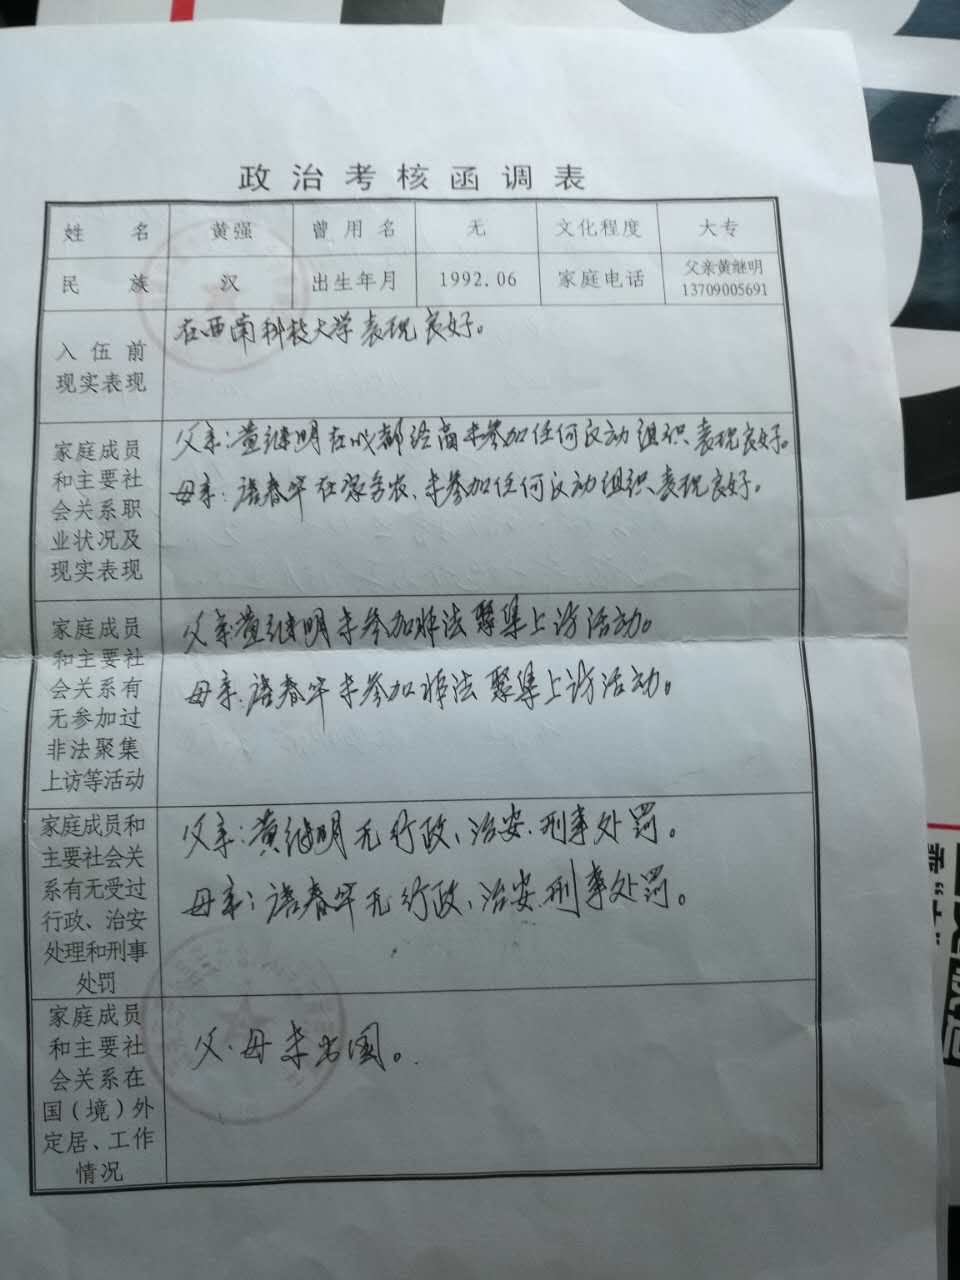 政治考核函调表
姓名 黄强 曾用名 无 文化程度 大专
民族 汉 出生年月 1992.06 家庭电话 父亲黄继明
13709005691
入伍前
现实表现
在西南科技大学表现良好。
家庭成员
和主要社
会关系职
业状况及
现实表现
父亲:黄继明在成都经商未参加任何反动组织表现良好。
母亲:春华在家务农、未参加任何反动组织表现良好。
家庭成员
和主要社
会关系有
无参加过
非法聚集
上访等活动
父亲:黄继明未参加非法聚集上访活动。
母亲:春华未参加非法聚集上访活动。
家庭成员和
主要社会关
系有无受过
行政、治安
处理和刑事
处罚
父亲:黄继明无行政、治安、刑事处罚。
母亲:春华无行政、治安、刑事处罚。
家庭成员
和主要社
会关系在
国(境)外
定居、工作
情况
父、母未出国。